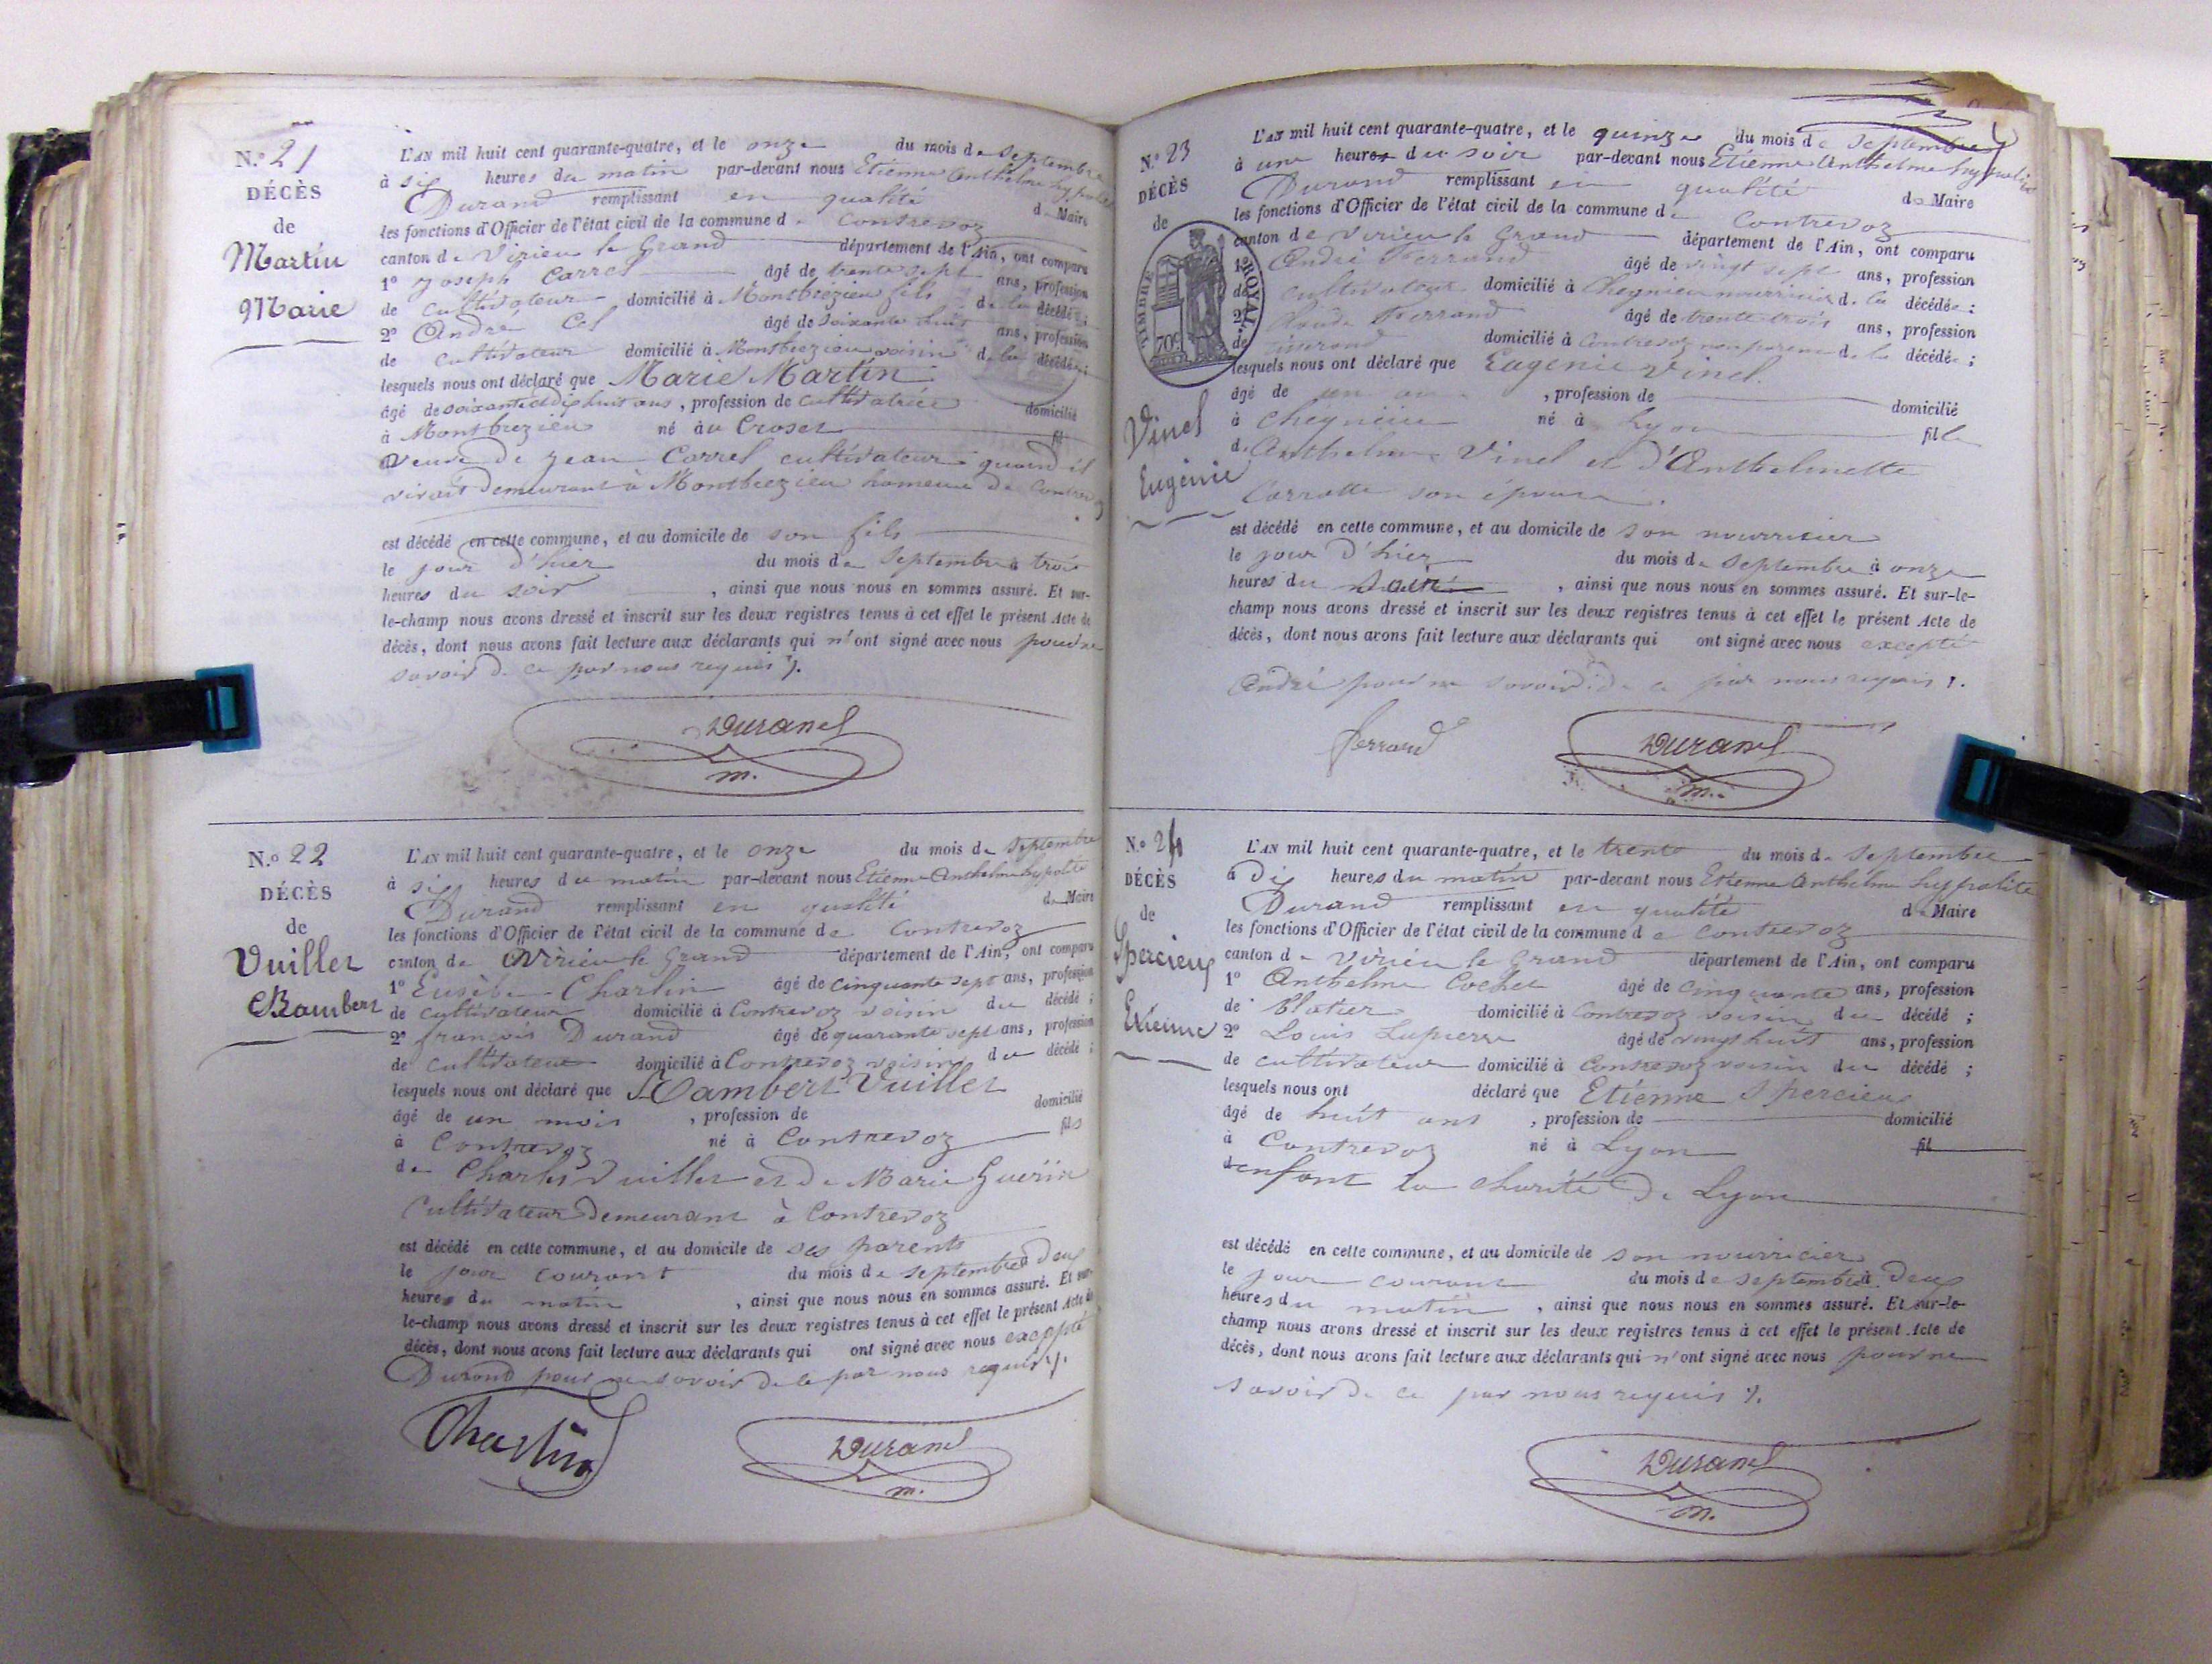 N.° 21
DÉCÈS
de
Martin
Marie
L'AN mil huit cent quarante-quatre, et le onze du mois de Septembre
à six heures du matin par-devant nous Etienne Anthelme hypolite
Durand remplissant en qualité de Maire
les fonctions d'Officier de l'état civil de la commune de Contrevoz
canton de Virieu le Grand département de l'Ain, ont comparu
1° Joseph Carrel âgé de trente sept ans, profession
de cultivateur domicilié à Montbrezieu fils de la décédée;
2° André Col âgé de soixante huit ans, profession
de cultivateur domicilié à Montbrezieu voisin de la décédée;
lesquels nous ont déclaré que Marie Martin
âgé de soixante et dix huit ans, profession de cultivatrice domicilié
à Montbrezieu né àu Croset fil
veuve de Jean Carrel cultivateur quand il
vivait demeurant à Montbrezieu hameau de Contrevoz
est décédé en cette commune, et au domicile de son fils
le jour d'hier du mois de Septembre à trois
heures du soir, ainsi que nous nous en sommes assuré. Et sur-
le-champ nous avons dressé et inscrit sur les deux registres tenus à cet effet le présent Acte de
décès, dont nous avons fait lecture aux déclarants qui n'ont signé avec nous pour ne
savoir de ce par nous requis ./.
Durand
m.
N.° 22
DÉCÈS
de
Vuillet
Rambert
L'AN mil huit cent quarante-quatre, et le onze du mois de Septembre
à six heures du matin par-devant nous Etienne Anthelme hypolite
Durand remplissant en qualité de Maire
les fonctions d'Officier de l'état civil de la commune de Contrevoz
canton de Virieu le Grand département de l'Ain, ont comparu
1° Eusèbe Charlin âgé de cinquante sept ans, profession
de cultivateur domicilié à Contrevoz voisin du décédé;
2° françois Durand âgé de quarante sept ans, profession
de cultivateur domicilié à Contrevoz voisin du décédé;
lesquels nous ont déclaré que Rambert Vuillet
âgé de un mois, profession de domicilié
à Contrevoz né à Contrevoz fils
de Charles Vuillet et de Marie Guérin
Cultivateur demeurant à Contrevoz
est décédé en cette commune, et au domicile de ses parents
le jour courant du mois de septembre à deux
heures du matin, ainsi que nous nous en sommes assuré. Et sur-
le-champ nous avons dressé et inscrit sur les deux registres tenus à cet effet le présent Acte de
décès, dont nous avons fait lecture aux déclarants qui ont signé avec nous excepté
Durand pour ne savoir de ce par nous requis ./.
Charlin
Durand
m.
N.° 23
DÉCÈS
de
TIMBRE ROYAL.
70c
Vinel
Eugénie
L'AN mil huit cent quarante-quatre, et le quinze du mois de Septembre
à une heures du soir par-devant nous Etienne Anthelme hypolite
Durand remplissant en qualité de Maire
les fonctions d'Officier de l'état civil de la commune de Contrevoz
canton de Virieu le Grand département de l'Ain, ont comparu
1° André Ferrand âgé de vingt sept ans, profession
de cultivateur domicilié à Cheignieu nourricier de la décédée;
2° Claude Ferrand âgé de trente trois ans, profession
de tisserand domicilié à Contrevoz non parent de la décédée;
lesquels nous ont déclaré que Eugenie Vinel
âgé de un an, profession de domicilié
à Cheignieu né à Lyon fille
d'Anthelme Vinel et d'Anthelmette
Carrotte son épouse.
est décédé en cette commune, et au domicile de son nourricier
le jour d'hier du mois de Septembre à onze
heures du , ainsi que nous nous en sommes assuré. Et sur-le-
champ nous avons dressé et inscrit sur les deux registres tenus à cet effet le présent Acte de
décès, dont nous avons fait lecture aux déclarants qui ont signé avec nous excepté
André pour ne savoir de ce par nous requis ./.
ferrand
Durand
m.
N.° 24
DÉCÈS
de
Spercieux
Etienne
L'AN mil huit cent quarante-quatre, et le trente du mois de Septembre
à dix heures du matin par-devant nous Etienne Anthelme hypolite
Durand remplissant en qualité de Maire
les fonctions d'Officier de l'état civil de la commune de Contrevoz
canton de Virieu le Grand département de l'Ain, ont comparu
1° Anthelme Cochet âgé de cinquante ans, profession
de blatier domicilié à Contrevoz voisin du décédé;
2° Louis Lupierre âgé de vingt huit ans, profession
de cultivateur domicilié à Contrevoz voisin du décédé;
lesquels nous ont déclaré que Etienne Spercieux
âgé de huit ans, profession de domicilié
à Contrevoz né à Lyon fil
d enfant la charité de Lyon
est décédé en cette commune, et au domicile de son nourricier
le jour courant du mois de septembre à deux
heures du matin, ainsi que nous nous en sommes assuré. Et sur-le-
champ nous avons dressé et inscrit sur les deux registres tenus à cet effet le présent Acte de
décès, dont nous avons fait lecture aux déclarants qui n'ont signé avec nous pour ne
savoir de ce par nous requis ./.
Durand
m.